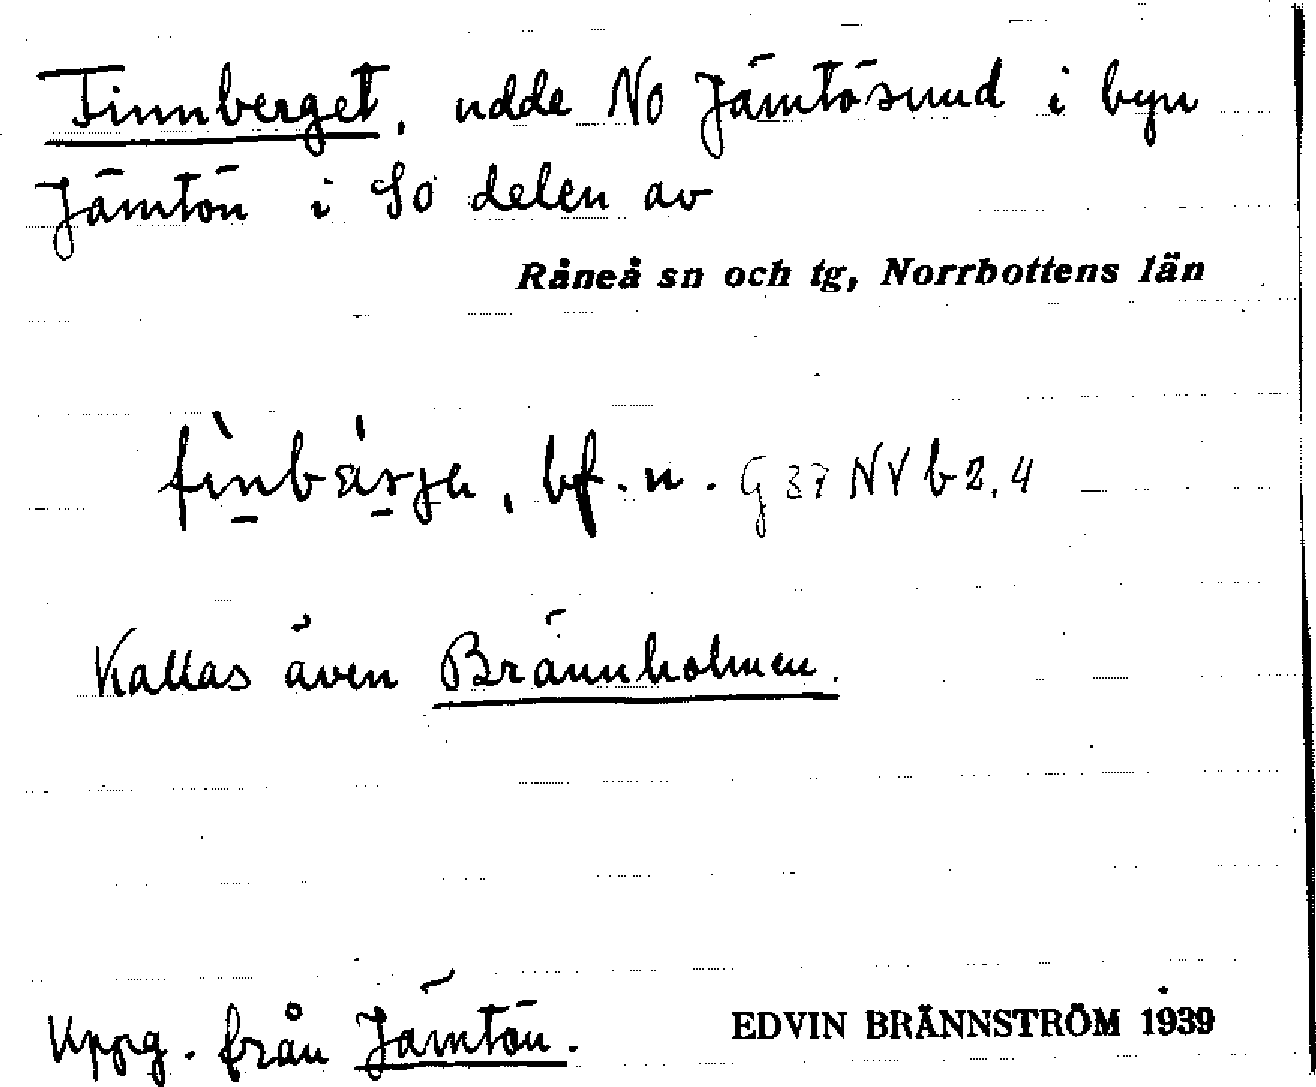 Finnberget, udde NO Jämtösund i byn
Jämtön i SO delen av
Råneå sn och tg, Norrbottens län
bf. n. G 37 NV b 2, 4
Kallas även Brännholmen.
Uppg. från Jämtön.
EDVIN BRÄNNSTRÖM 1939